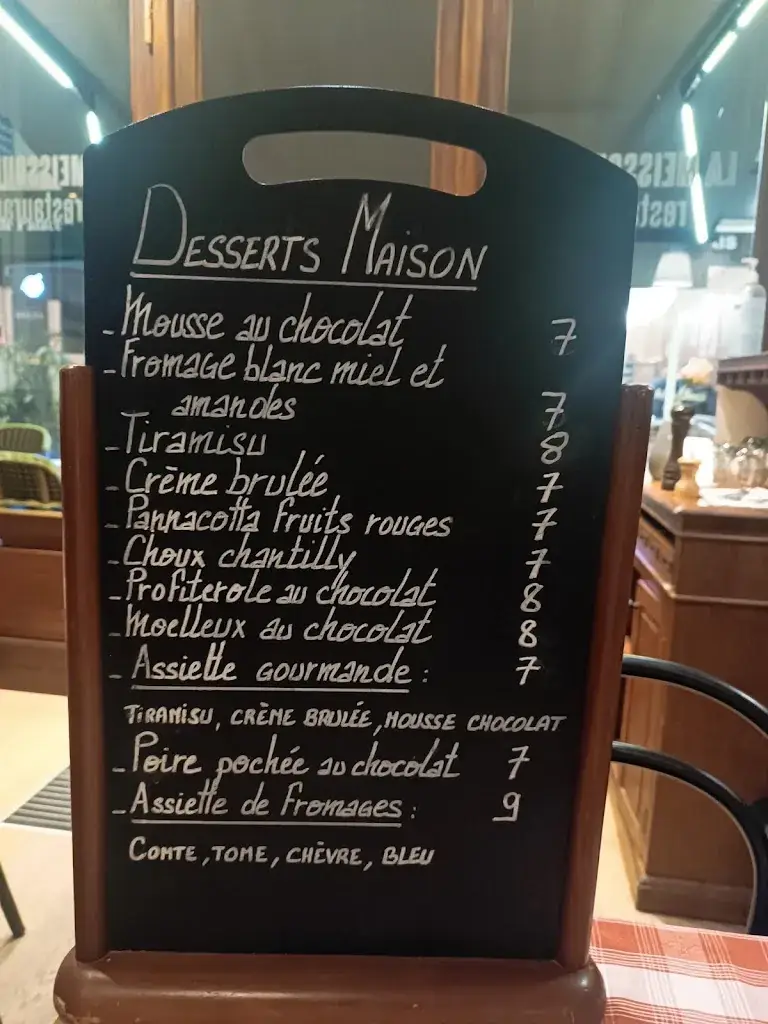 DESSERTS MAISON
- Mousse au chocolat 7
- Fromage blanc miel et
amandes 7
- Tiramisu 8
- Crème brulée 7
- Pannacotta fruits rouges 7
- Choux chantilly 7
- Profiterole au chocolat 8
- Moelleux au chocolat 8
- Assiette gourmande : 7
TIRAMISU, CRÈME BRULÉE, MOUSSE CHOCOLAT
- Poire pochée au chocolat 7
- Assiette de fromages : 9
COMTE, TOME, CHÈVRE, BLEU